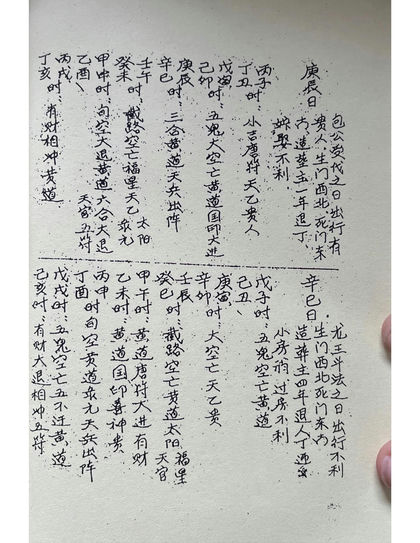 庚辰日
包公受伐之日出行有
贵人生门西北死门东
方造葬主一年退丁
嫁娶不利
丙子时:
丁丑时: 小吉唐符天乙贵人
戊寅时: 五鬼大空亡黄道国印大进
己卯时:
庚辰时: 三合黄道天兵出阵
辛巳
壬午时: 截路空亡福星天乙 太阳
癸未
甲申时: 旬空大退黄道六合大退
乙酉 天官五符
丙戌时:
丁亥时: 有财相冲黄道
辛巳日
龙王斗法之日出行不利
生门西北死门东方
造葬主四年退人丁
小房 过房不利
戊子时: 五鬼空亡黄道
己丑
庚寅
辛卯时: 大空亡天乙贵
壬辰 福星
癸巳时: 截路空亡黄道太阳 天官
甲午时: 黄道唐符大进有财
乙未时: 黄道国印喜神贵
丙申
丁酉时: 旬空黄道 天兵出阵
戊戌时: 五鬼空亡五不迂黄道
己亥时: 有财大退相冲五符